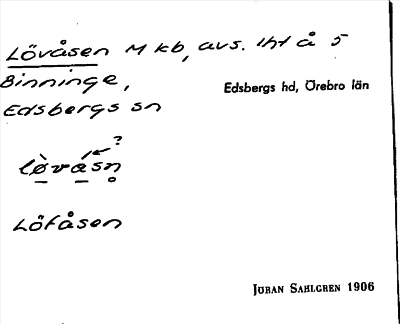 Lövåsen M kb, avs. lht å 5
Binninge,
Edsbergs hd, Örebro län
Edsbergs sn
?
lø̀vásn̥
Löfåsen
JÖRAN SAHLGREN 1906